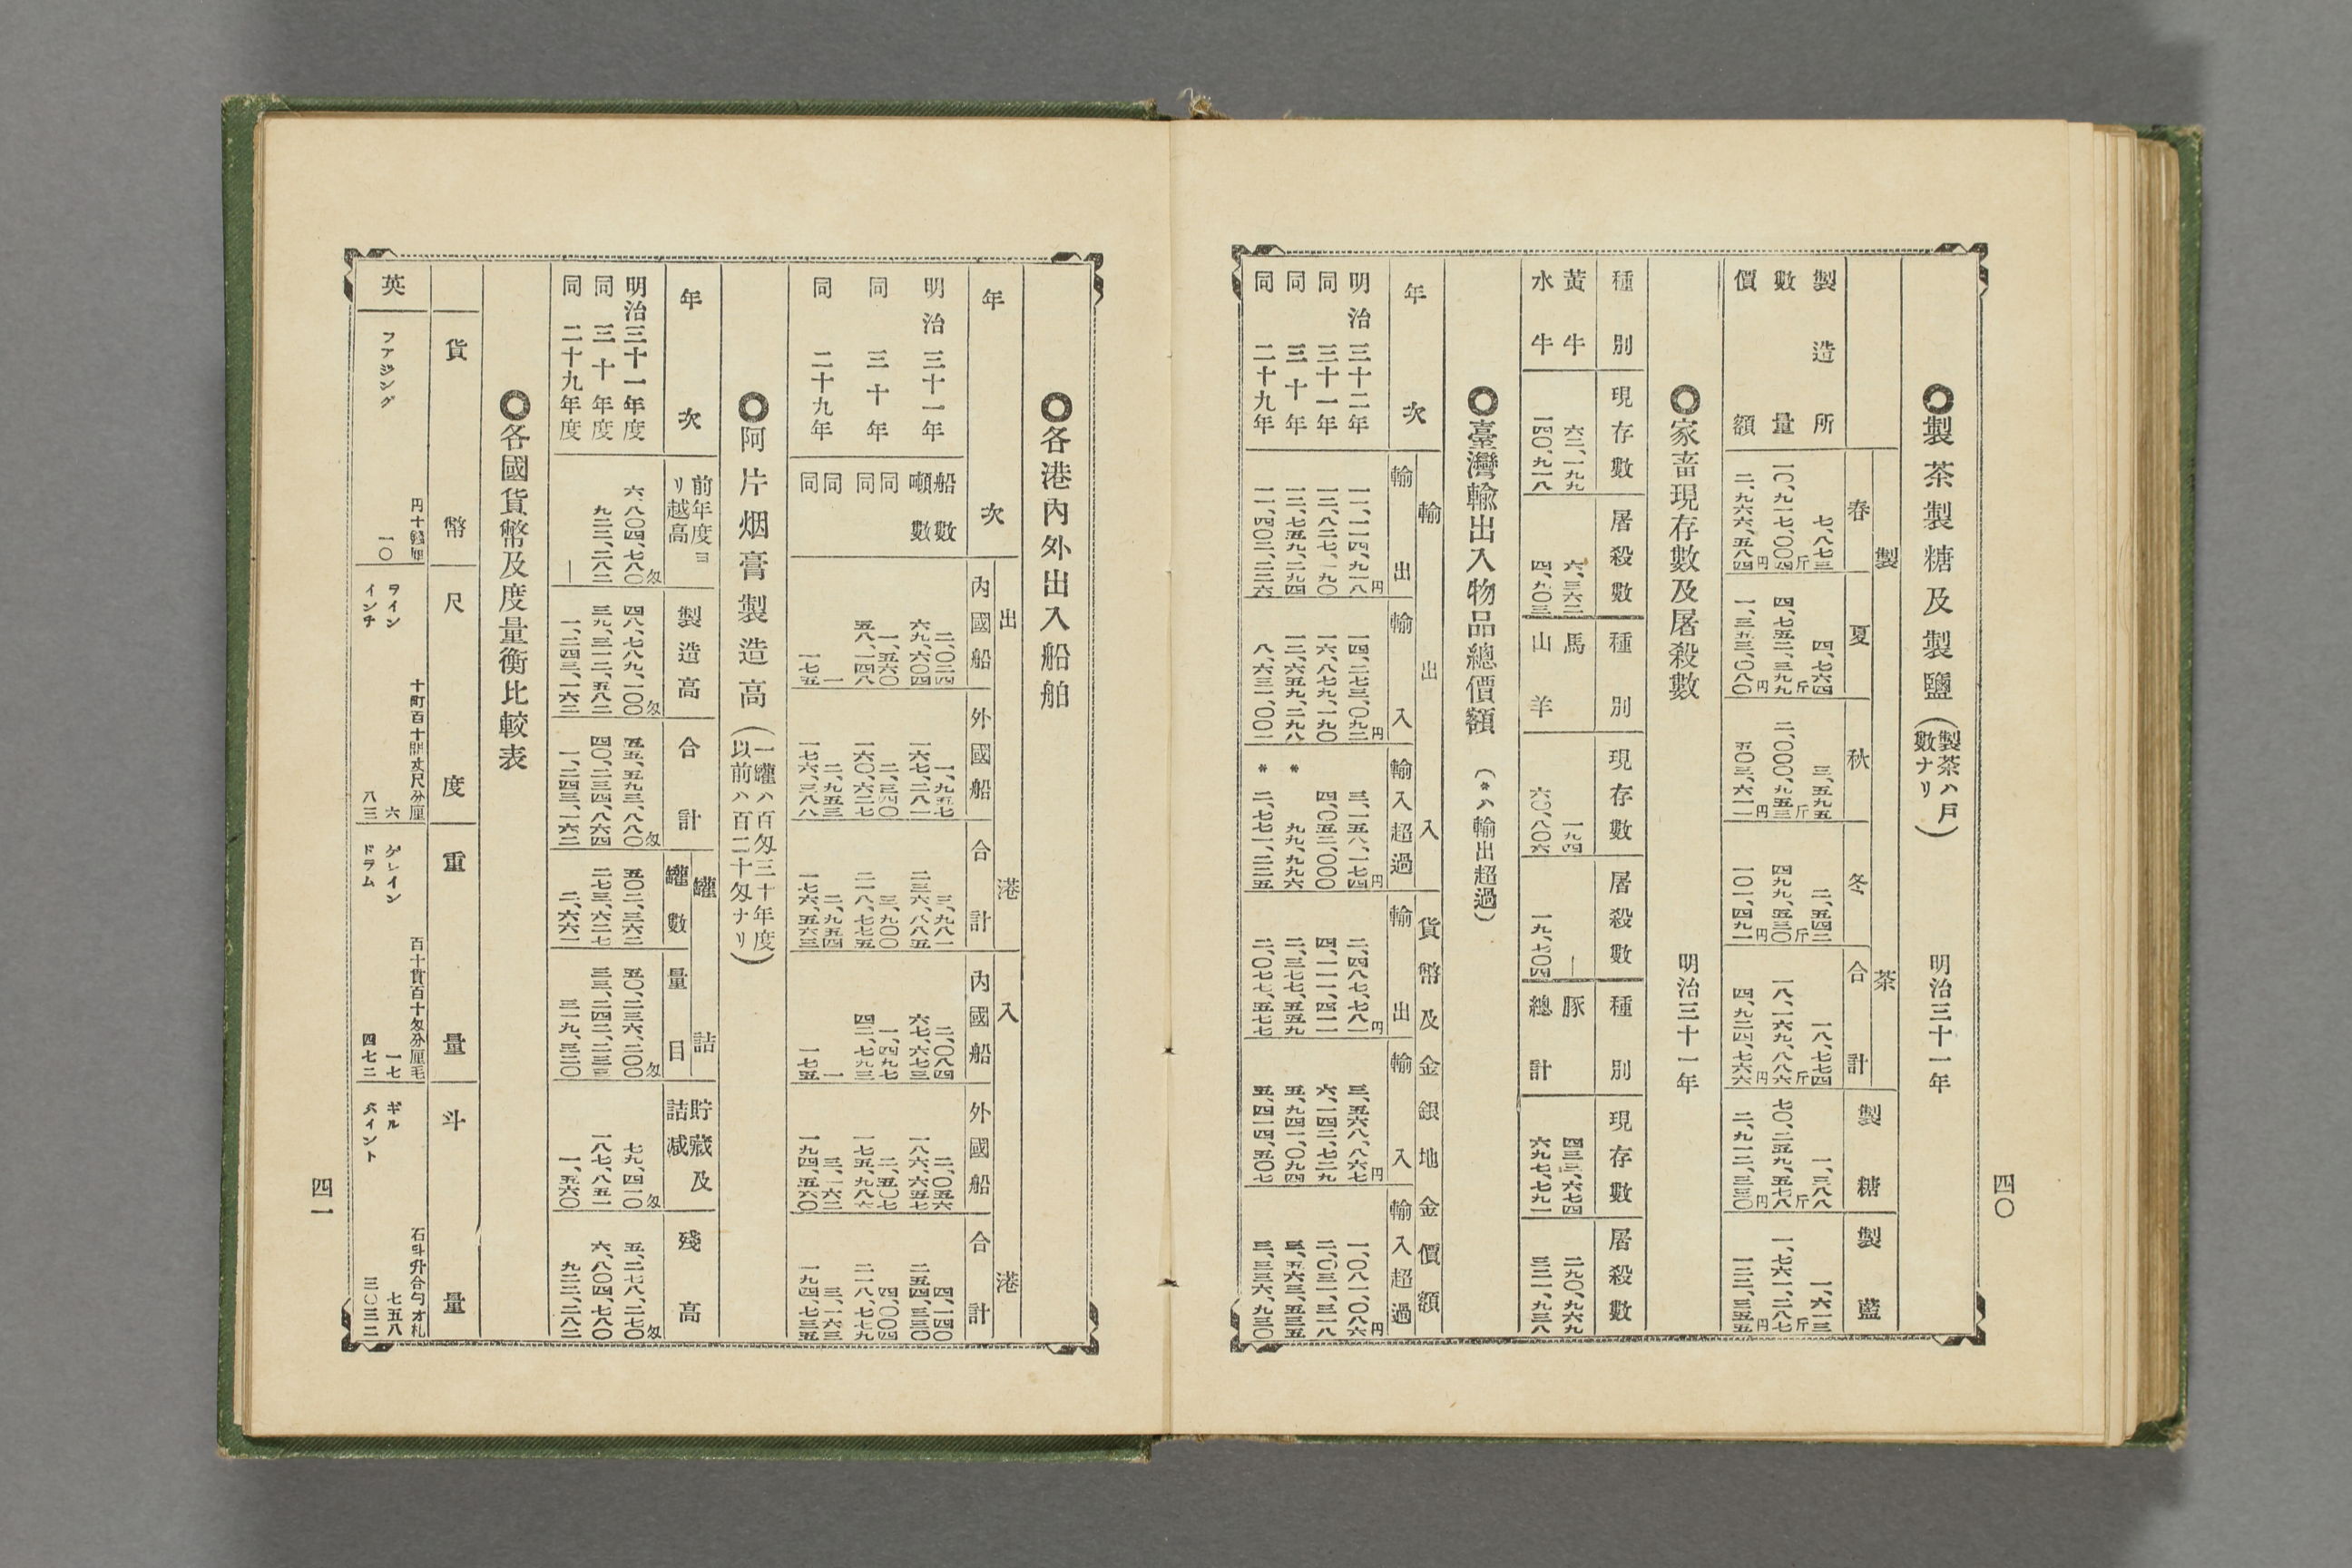 四〇
◎製茶製糖及製鹽（製茶ハ戶數ナリ）　明治三十一年
製　茶
春　夏　秋　冬　合計　製糖　製藍
製造所　七、八七三　四、七六四　三、五九五　二、五四二　一八、七七四　一、三八八　一、六一三
數量　一〇、九一七、〇〇四斤　四、七五二、三九九斤　二、〇〇〇、九五三斤　四九九、五三〇斤　一八、一六九、八八六斤　七〇、二五九、五七八斤　一、七六一、二八七斤
價額　二、九六六、五八四円　一、三五三、〇八〇円　五〇三、六一一円　一〇一、四九一円　四、九二四、七六六円　二、九一二、三三〇円　一二二、三五五円
◎家畜現存數及屠殺數　明治三十一年
種別　現存數　屠殺數　種別　現存數　屠殺數　種別　現存數　屠殺數
黃牛　六二、一九九　六、三六二　馬　一九四　—　豚　四三三、六七四　二九〇、九六九
水牛　一五〇、九一八　四、九〇三　山羊　六〇、八〇六　一九、七〇四　總計　六九七、七九一　三二一、九三八
◎臺灣輸出入物品總價額　（*ハ輸出超過）
年次　輸出入　貨幣及金銀地金價額
輸出　輸入　輸入超過　輸出　輸入　輸入超過
明治三十二年　一一、一一四、九一八円　一四、二七三、〇九二円　三、一五八、一七四円　二、四八七、七八一円　三、五六八、八六七円　一、〇八一、〇八六円
同三十一年　一二、八二七、一九〇　一六、八七九、一九〇　四、〇五二、〇〇〇　四、一一一、四一一　六、一四二、七二九　二、〇三一、三一八
同三十年　一二、七五九、二九四　一二、六五九、二九八　*　九九、九九六　二、三七七、五五九　五、九四一、〇九四　三、五六三、五三五
同二十九年　一一、四〇二、二二六　八、六三一、〇〇一　*　二、七七一、二二五　二、〇七七、五七七　五、四一四、五〇七　三、三三六、九三〇
◎各港內外出入船舶
年次　出港　入港
內國船　外國船　合計　內國船　外國船　合計
明治三十一年　船數　二、〇二四　一、九五七　三、九八一　二、〇八四　二、〇五六　四、一四〇
噸數　六九、六〇四　一六七、二八一　二三六、八八五　六七、六七三　一八六、六五七　二五四、三三〇
同三十年　同　一、五六〇　二、三四〇　三、九〇〇　一、四九七　二、五〇七　四、〇〇四
同　五八、一四八　一六〇、六二七　二一八、七七五　四二、七九三　一七五、九八六　二一八、七七九
同二十九年　同　一　二、九五三　二、九五四　一　三、一六二　三、一六三
同　一七五　一七六、三八八　一七六、五六三　一七五　一九四、五六〇　一九四、七三五
◎阿片烟膏製造高（一罐ハ百匁三十年度以前ハ百二十匁ナリ）
年次　前年度ヨリ越高　製造高　合計　罐詰　貯藏及詰減　殘高
罐數　量目
明治三十一年度　六、八〇四、七八〇匁　四八、七八九、一〇〇匁　五五、五九三、八八〇匁　五〇二、三六二　五〇、二三六、二〇〇匁　七九、四一〇匁　五、二七八、二七〇匁
同三十年度　九二二、二八二　三九、三一二、五八二　四〇、二三四、八六四　二七三、六二七　三三、二四二、二三三　一八七、八五一　六、八〇四、七八〇
同二十九年度　—　一、二四三、一六二　一、二四三、一六二　二、六六一　三一九、三二〇　一、五六〇　九二二、二八二
◎各國貨幣及度量衡比較表
貨幣　尺度　重量　斗量
英
円十錢厘　十町百十間丈尺分厘　百十貫百十匁分厘毛　石斗升合勺才札
ファジング　一〇　ライン　六　グレイン　一七　ギル　七五八
インチ　八三　ドラム　四七二　パイント　三〇三二
四一